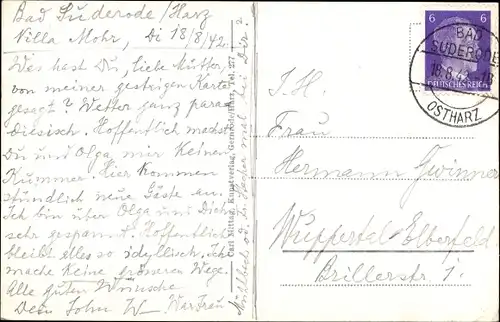 Bad Suderode/Harz
Villa Mohr, Di 18/8/42.
Was hast Du, liebe Mutter,
von meiner gestrigen Karte
gesagt? Wetter ganz para-
diesisch. Hoffentlich machst
Du und Olga mir keinen
Kummer. Hier kommen
stündlich neue Gäste an.
Ich bin über Olga und Dich
sehr gespannt. Hoffentlich
bleibt alles so idyllisch, ich
mache keine grösseren Wege.
Alle guten Wünsche
Dein Sohn W. War Frau
mal bei Dir?
2.
Carl Rittag, Kunstverlag, Gernrode/Harz, Tel. 277
I. H.
Frau
Hermann Gwinner
Wuppertal-Elberfeld
Brillerstr. 1.
6 6
DEUTSCHES REICH
BAD
SUDERODE
18.8.42.-18
OSTHARZ